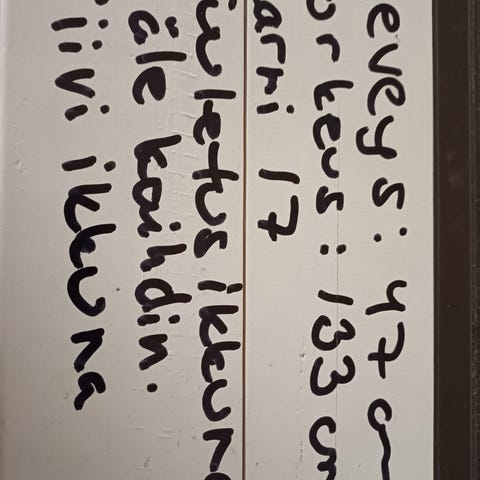 eveys: 47 cm
orkeus: 133 cm
arni 17
uuletus ikkuna
äle kaihdin.
iivi ikkuna